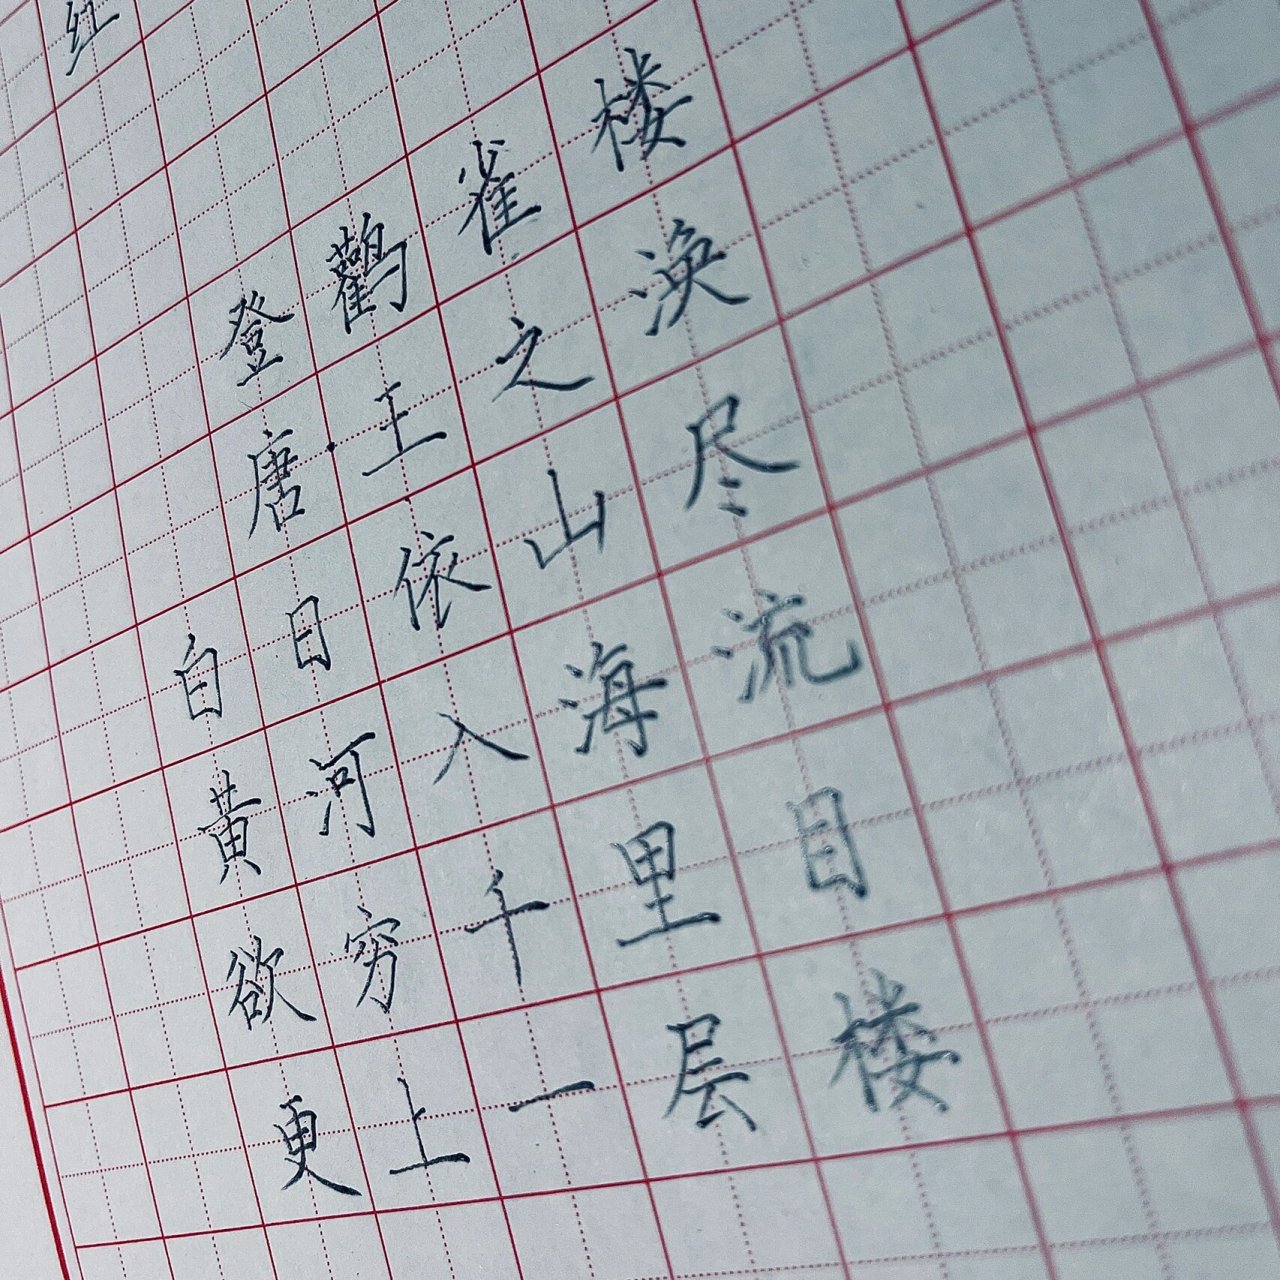 红
登鹳雀楼
唐·王之涣
白日依山尽
黄河入海流
欲穷千里目
更上一层楼